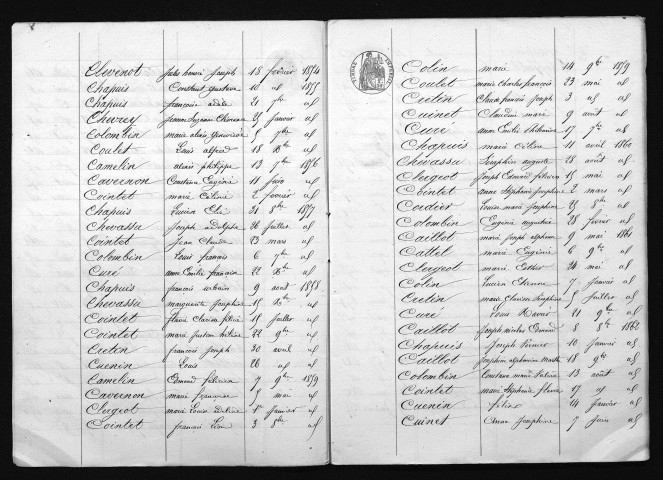 Clevenot Jules henri Joseph 18 février 1854
Chapuis Constant gustave 10 id 1855
Chapuis françoise adèle 21 7bre id
Chevrey 25 Janvier id
Colombin marie alais genevieve 1 7bre id
Coulet Louis alfred 18 Xbre id
Camelin alexis philippe 13 7bre 1856
Cavernon Constance Eugénie 11 Juin id
Cointet marie Céline 2 février id
Chapuis Lucien Elie 31 8bre 1857
Chevassu Joseph adolphe 26 Juillet id
Cointet Jean Claude 23 mars id
Colombin Louis français 6 7bre id
Curé anne Emilie française 22 Xbre id
Chapuis français urbain 9 août 1858
Chevassu marguerite Joséphine 15 Xbre id
Cointet flavie Clarisse félicie 15 Juillet id
Cointet marie 22 9bre id
Cretin françois Joseph 30 avril id
Cuenin Louis 26 id id
Camelin Edmond félicien 7 9bre 1859
Cavernon marie françoise 8 mai id
Clergeot marie Louise 1er Janvier id
Cointet français Léon 3 8bre id
Colin marie 14 9bre 1859
Coulet marie Charles françois 23 mai id
Cretin Claude françois Joseph 3 id id
Cuinet Claudine marie 9 août id
Curé anne Emilie 17 7bre id
Chapuis marie Céline 11 avril 1860
Chevassu Séraphin auguste 28 août id
Clergeot Joseph Edmond félicien 15 mai id
Cointet anne Stéphanie Joséphine 2 mars id
Cordier Louise marie Joséphine 25 8bre id
Colombin Eugénie augustine 28 février id
Caillot marie Joseph alphonse 9 mai 1861
Cattet marie Eugénie 6 9bre id
Clergeot marie Esther 24 mai id
Colin Lucien Etienne 7 Janvier id
Cretin marie Clarisse Joséphine 5 Juillet id
Curé Louis Xavier 11 9bre id
Caillot Joseph nicolas Edmond 8 8bre 1862
Chapuis Joseph 10 Janvier id
Caillot Joséphine alphonsine 18 9bre id
Colombin Constance marie 13 août id
Cointet marie Stéphanie flavie 17 id id
Cuenin félix 14 Janvier id
Cuinet Joséphine 7 Juin id